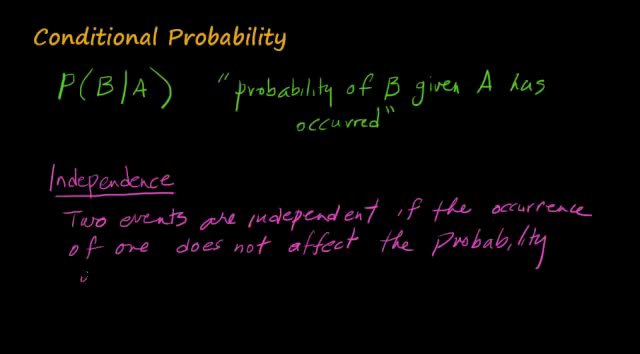 Conditional Probability
P(B/A) "probability of B given A has
occurred"
Independence
Two events are independent if the occurrence
of one does not affect the probability